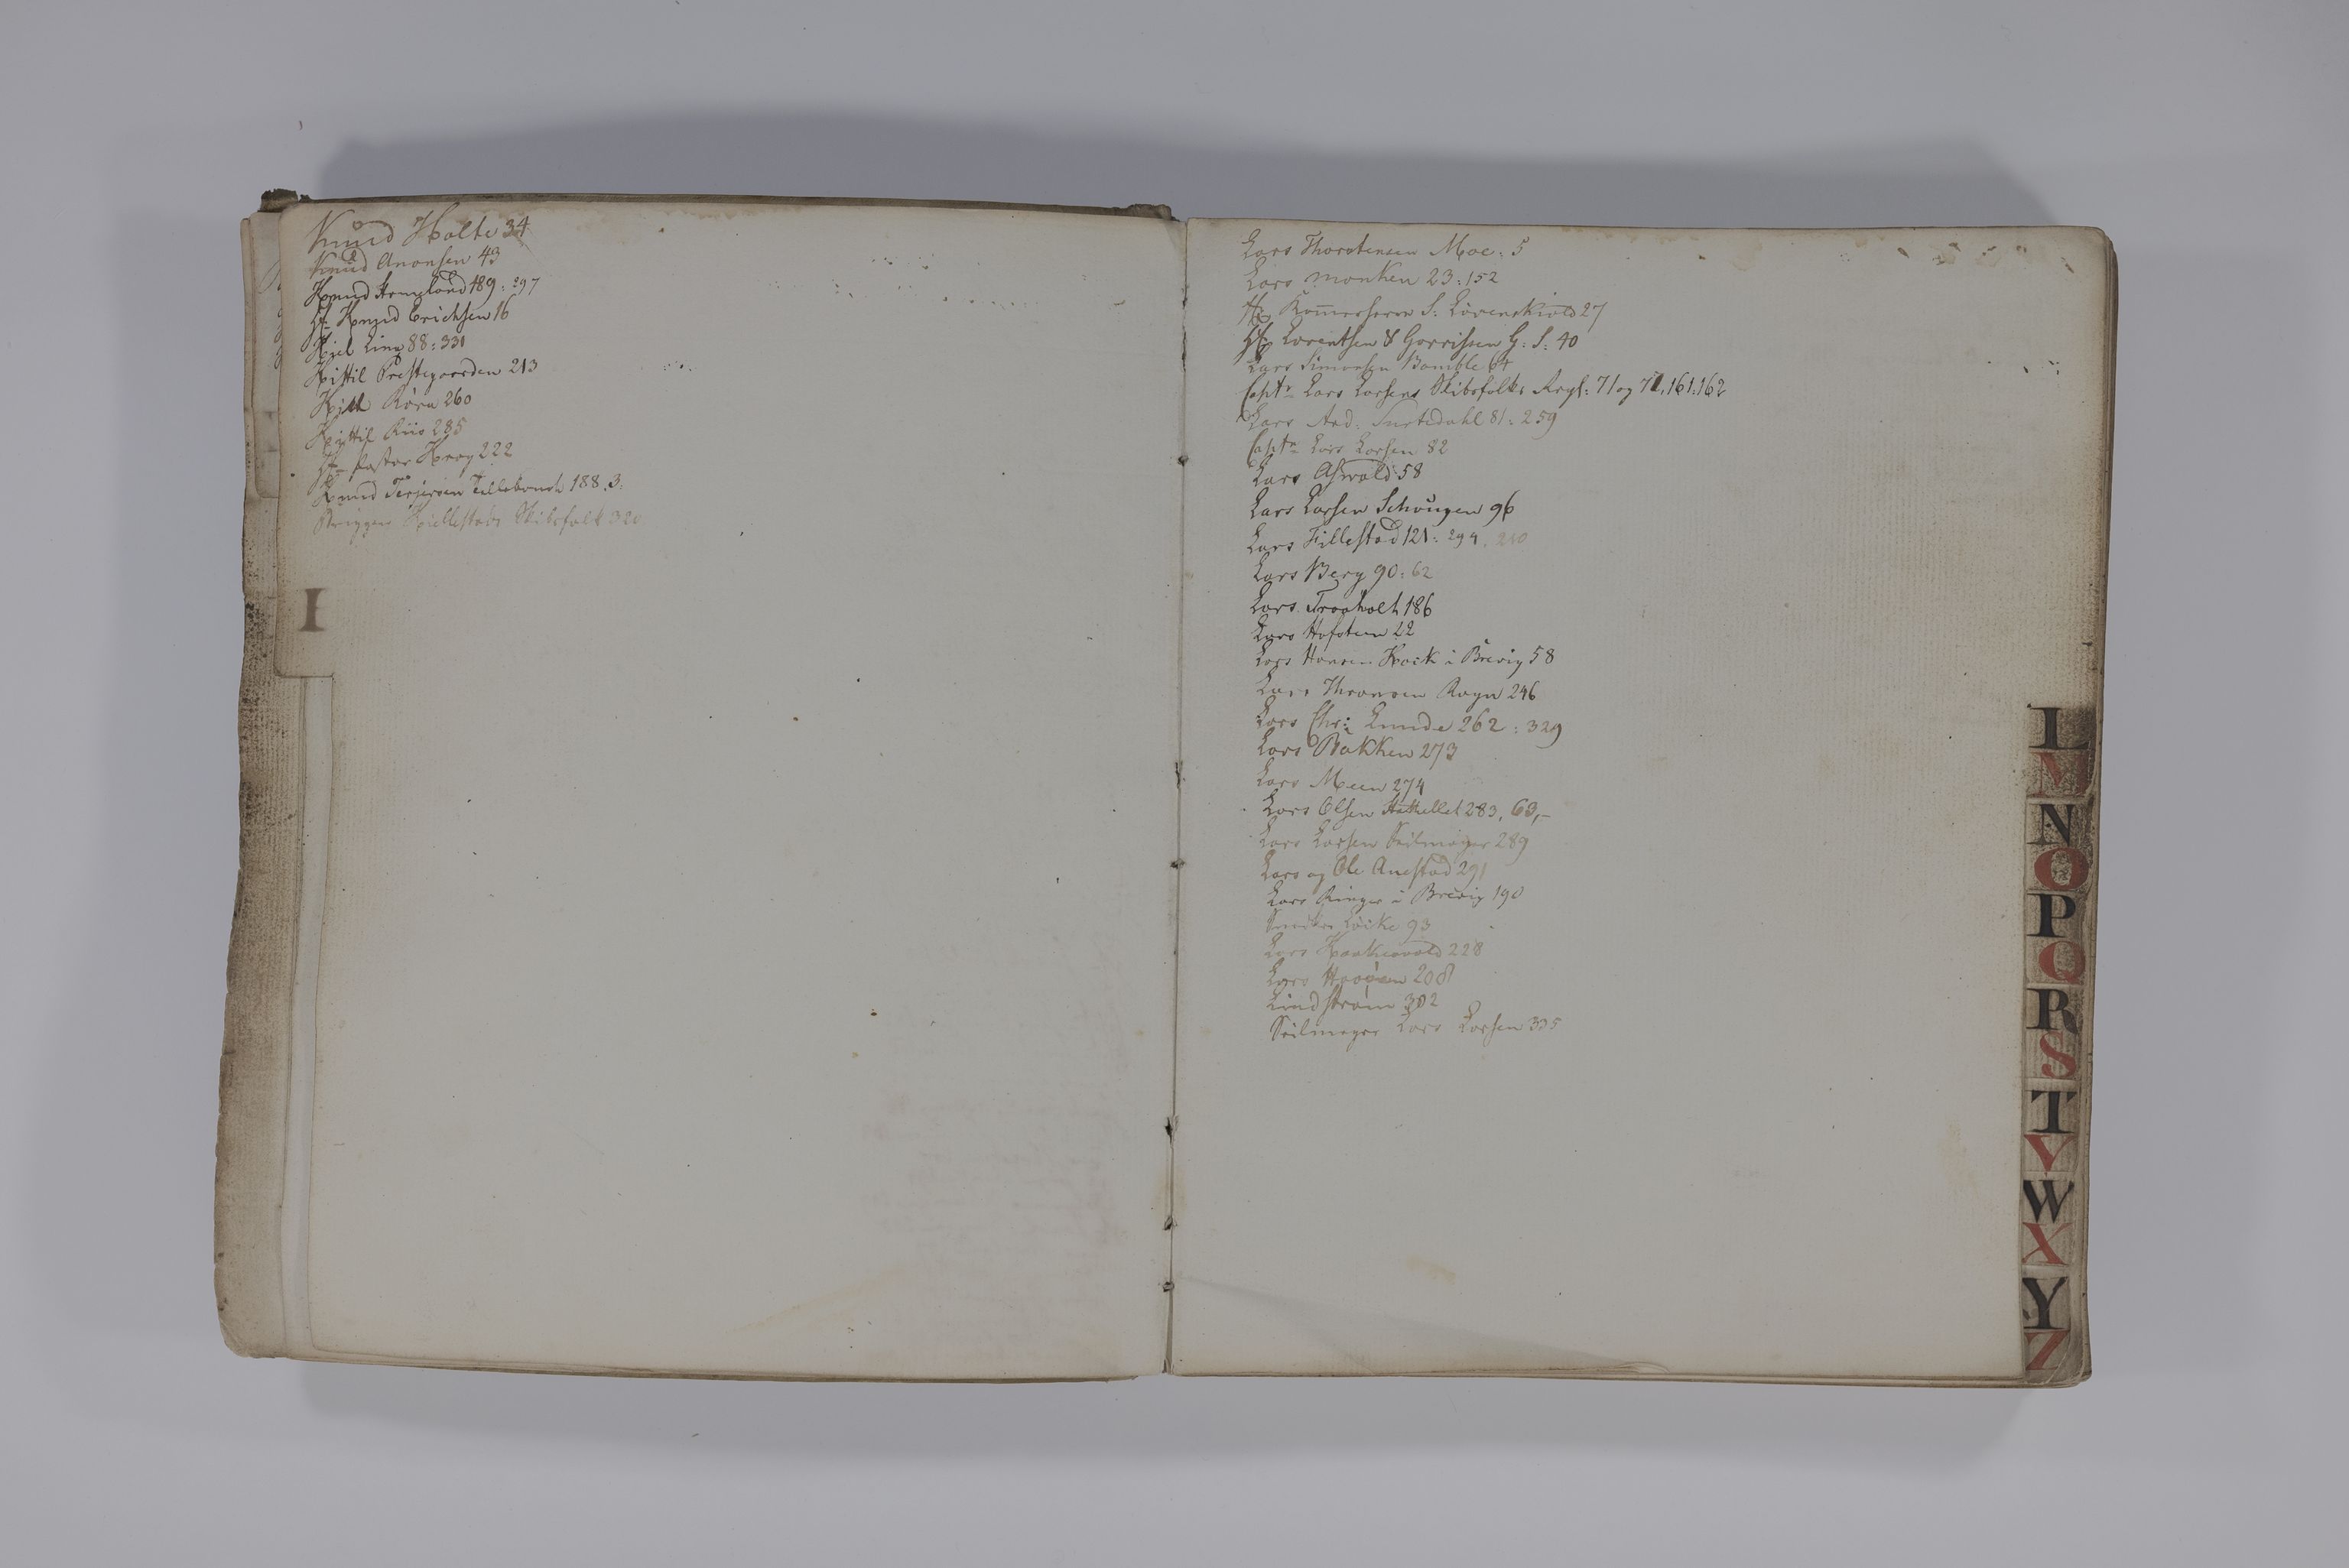 Knud Holte 34
Knud Anonsen 43
Knud 189. 297
Hr Knud Erichsen 16
Kiel Linn 88: 331
Kittil Prestegaarden 213
Röra 260
Kittil Riis 285
Hr Pastor Krog 222
Knud Terjesen 188. 3.
Briggen Skibsfolk 320
I
Lars Thorstensen Moe. 5
Lars Monken 23: 152
Hr S: Lövenskiold 27
Hr Lorentsen & Gorrissen G: S: 40
Lars Simonsen Bamble 64
Capt Lars Larsens Skibsfolks 71 og 72, 161: 162
Lars And: 81: 259
Capt Lars Larsen 82
Lars Aswald 58
Lars Larsen Schougen 96
Lars Fillestad 121: 294. 210
Lars Berg 90: 62
Lars Traaholt 186
Lars Hafsten 22
Lars Hansen i Brevig 58
Lars Thronsen Rogn 246
Lars Chr: Lunde 262: 329
Lars Bakken 273
Lars Meen 274
Lars Olsen Stathellet 283, 63,-
Lars Larsen Seilmager 289
Lars og Ole Anestad 291
Lars Ringer i Brevig 190
Löike 93
Lars 228
Lars 208
Lindström 302
Seilmager Lars Larsen 335
L
M
N
O
P
Q
R
S
T
V
W
X
Y
Z